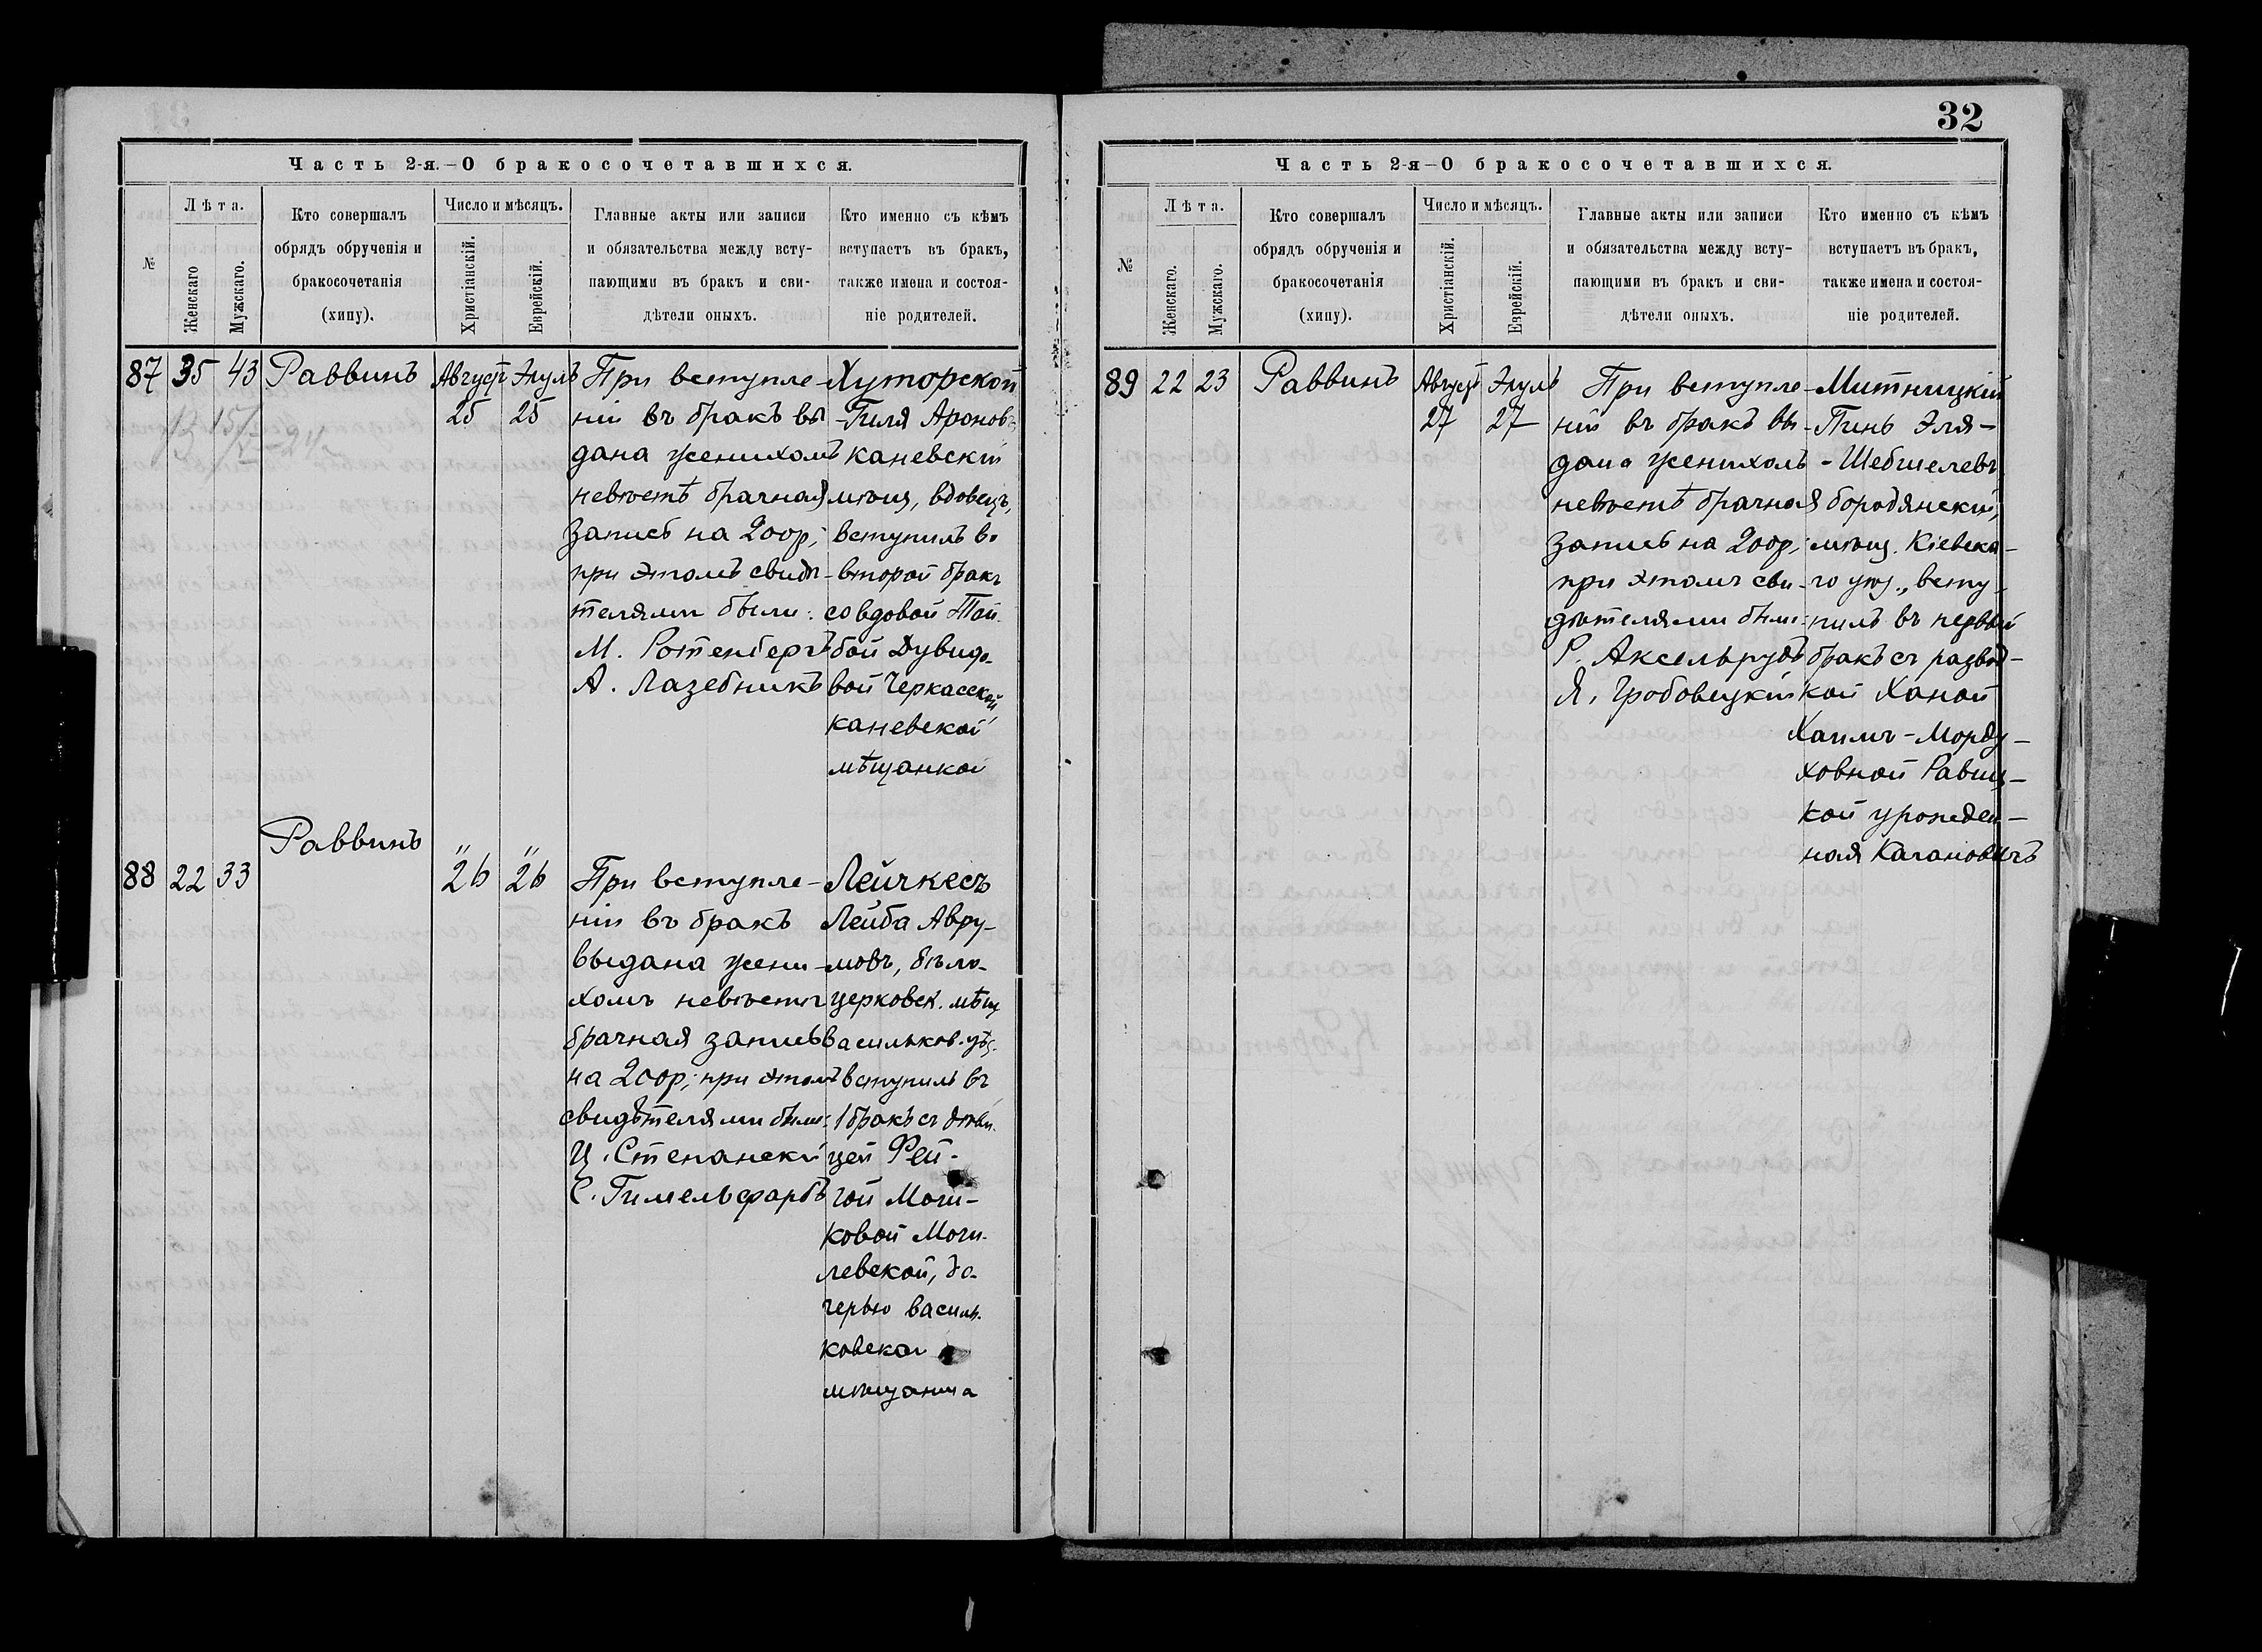 Часть 2-я.—О бракосочетавшихся.
№
Лѣта.
Женскаго
Мужскаго.
Кто совершалъ
обрядъ обрученія и
бракосочетанія
(хипу).
Число и мѣсяцъ.
Христіанскій.
Еврейскій.
Главные акты или записи
и обязательства между всту-
пающими въ бракъ и сви-
дѣтели оныхъ.
Кто именно съ кѣмъ
вступаетъ въ бракъ,
также имена и состоя-
ніе родителей.
87 35 43 Раввинъ
Август 25
Элулъ 25
При вступле-
ніи въ бракъ вы
дана женихомъ
невѣстѣ брачная
запись на 200р;
при этомъ свидѣ-
телями были:
М. Ротенбергъ
А. Лазебникъ
Хуторской
Гиля Аронов
каневскій
мѣщ, вдовецъ,
вступилъ во
второй бракъ
со вдовой Той
бой Дувидо-
вой Черкасской
каневской
мѣщанкой
88 22 33
Раввинъ
" 26
" 26
При вступле-
ніи въ бракъ
выдана жени-
хомъ невѣстѣ
брачная запись
на 200р; при этомъ
свидѣтелями были:
Ц. Степанскій
С. Гимельфарбъ
Лейчкесъ
Лейба Авру-
мовъ, бѣло-
церковск. мѣщ
Васильков. уѣз.
вступилъ въ
1 бракъ съ дѣви-
цей Фей-
гой Моши-
ковой Моги-
левской, до-
черью василь-
ковскаго
мѣщанина
32
Часть 2-я—О бракосочетавшихся.
№
Лѣта.
Женскаго.
Мужскаго.
Кто совершалъ
обрядъ обрученія и
бракосочетанія
(хипу).
Число и мѣсяцъ.
Христіанскій.
Еврейскій.
Главные акты или записи
и обязательства между всту-
пающими въ бракъ и сви-
дѣтели оныхъ.
Кто именно съ кѣмъ
вступаетъ въ бракъ,
также имена и состоя-
ніе родителей.
89 22 23 Раввинъ
Август 27
Элулъ 27
При вступле-
ніи въ бракъ вы-
дана женихомъ
невѣстѣ брачная
запись на 200р;
при этомъ сви-
дѣтелями были:
Р. Аксельрудъ
Я. Гробовецкій
Митницкій
Пинь Эля-
Шебшелевъ
бородянскій,
мѣщ. Кіевска-
го уѣз., всту-
пилъ въ первый
бракъ съ развод-
кой Ханой
Хаимъ-Морду-
ховной Равиц-
кой урожден-
ная Качановичъ